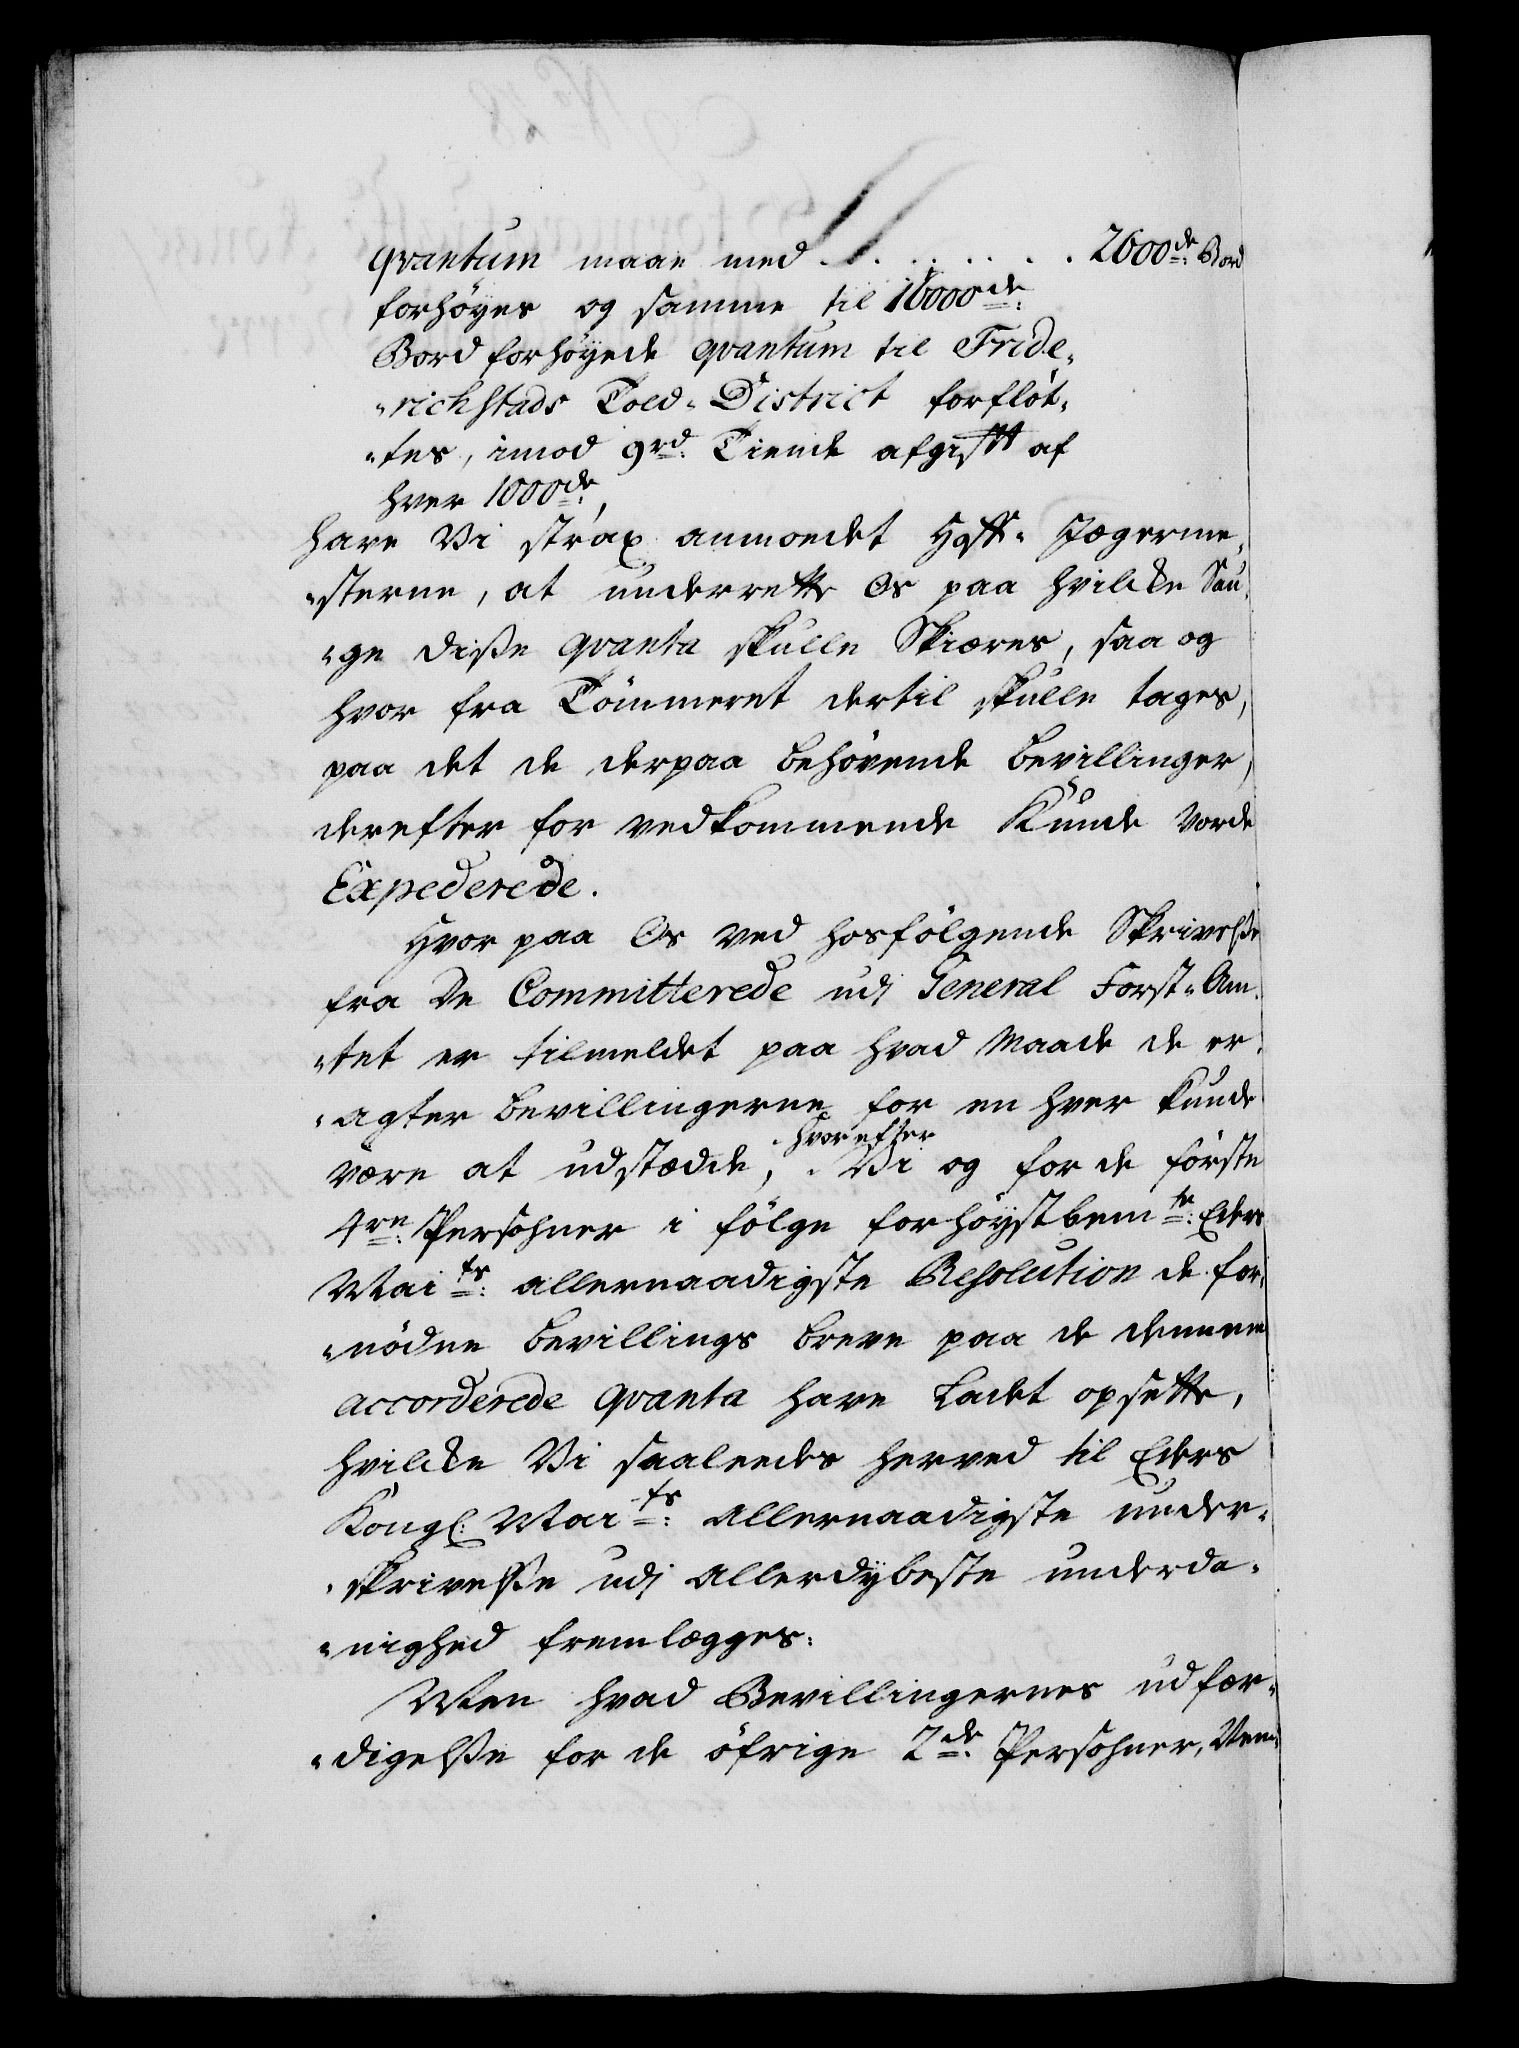 qvantum maae med . . . . . . . 2600de Bord
forhøyes og samme til 16000de:
Bord forhøyede qvantum til Fride„
„richstads Told-District forfløt„
„tes, imod 9rd: Tiende afgifft af
hver 1000de,
have Vi strax anmodet Hoff- Jægerme„
„sterne, at underrette Os paa hvilcke Sau„
„ge diße qvanta skulle Skiæres, saa og
hvor fra Tömmeret dertil skulle tages,
paa det de derpaa behövende bevillinger,
derefter for vedkommende Kunde vorde
Expederede.
Hvor paa Os ved hosfölgende Skrivelße
fra De Committerede udj General Forst-Am„
„tet er tilmeldet paa hvad Maade de er„
„agter bevillingerne for en hver kunde
være at udstædde, hvorefter Vi og for de förste
4re: Persohner i fölge forhöystbemte: Eders
Maits: allernaadigste Resolution de for„
„nödne bevillings breve paa de dennem
accorderede qvanta have Ladet opsette,
hvilcke Vi saaledes herved til Eders
Kongl: Maits: Allernaadigste under„
„skrivelße udj Allerdybeste underda„
„nighed fremlægges.
Men hvad Bevillingernes udfær„
„digelße for de öfrige 2de: Persohner, Nem„